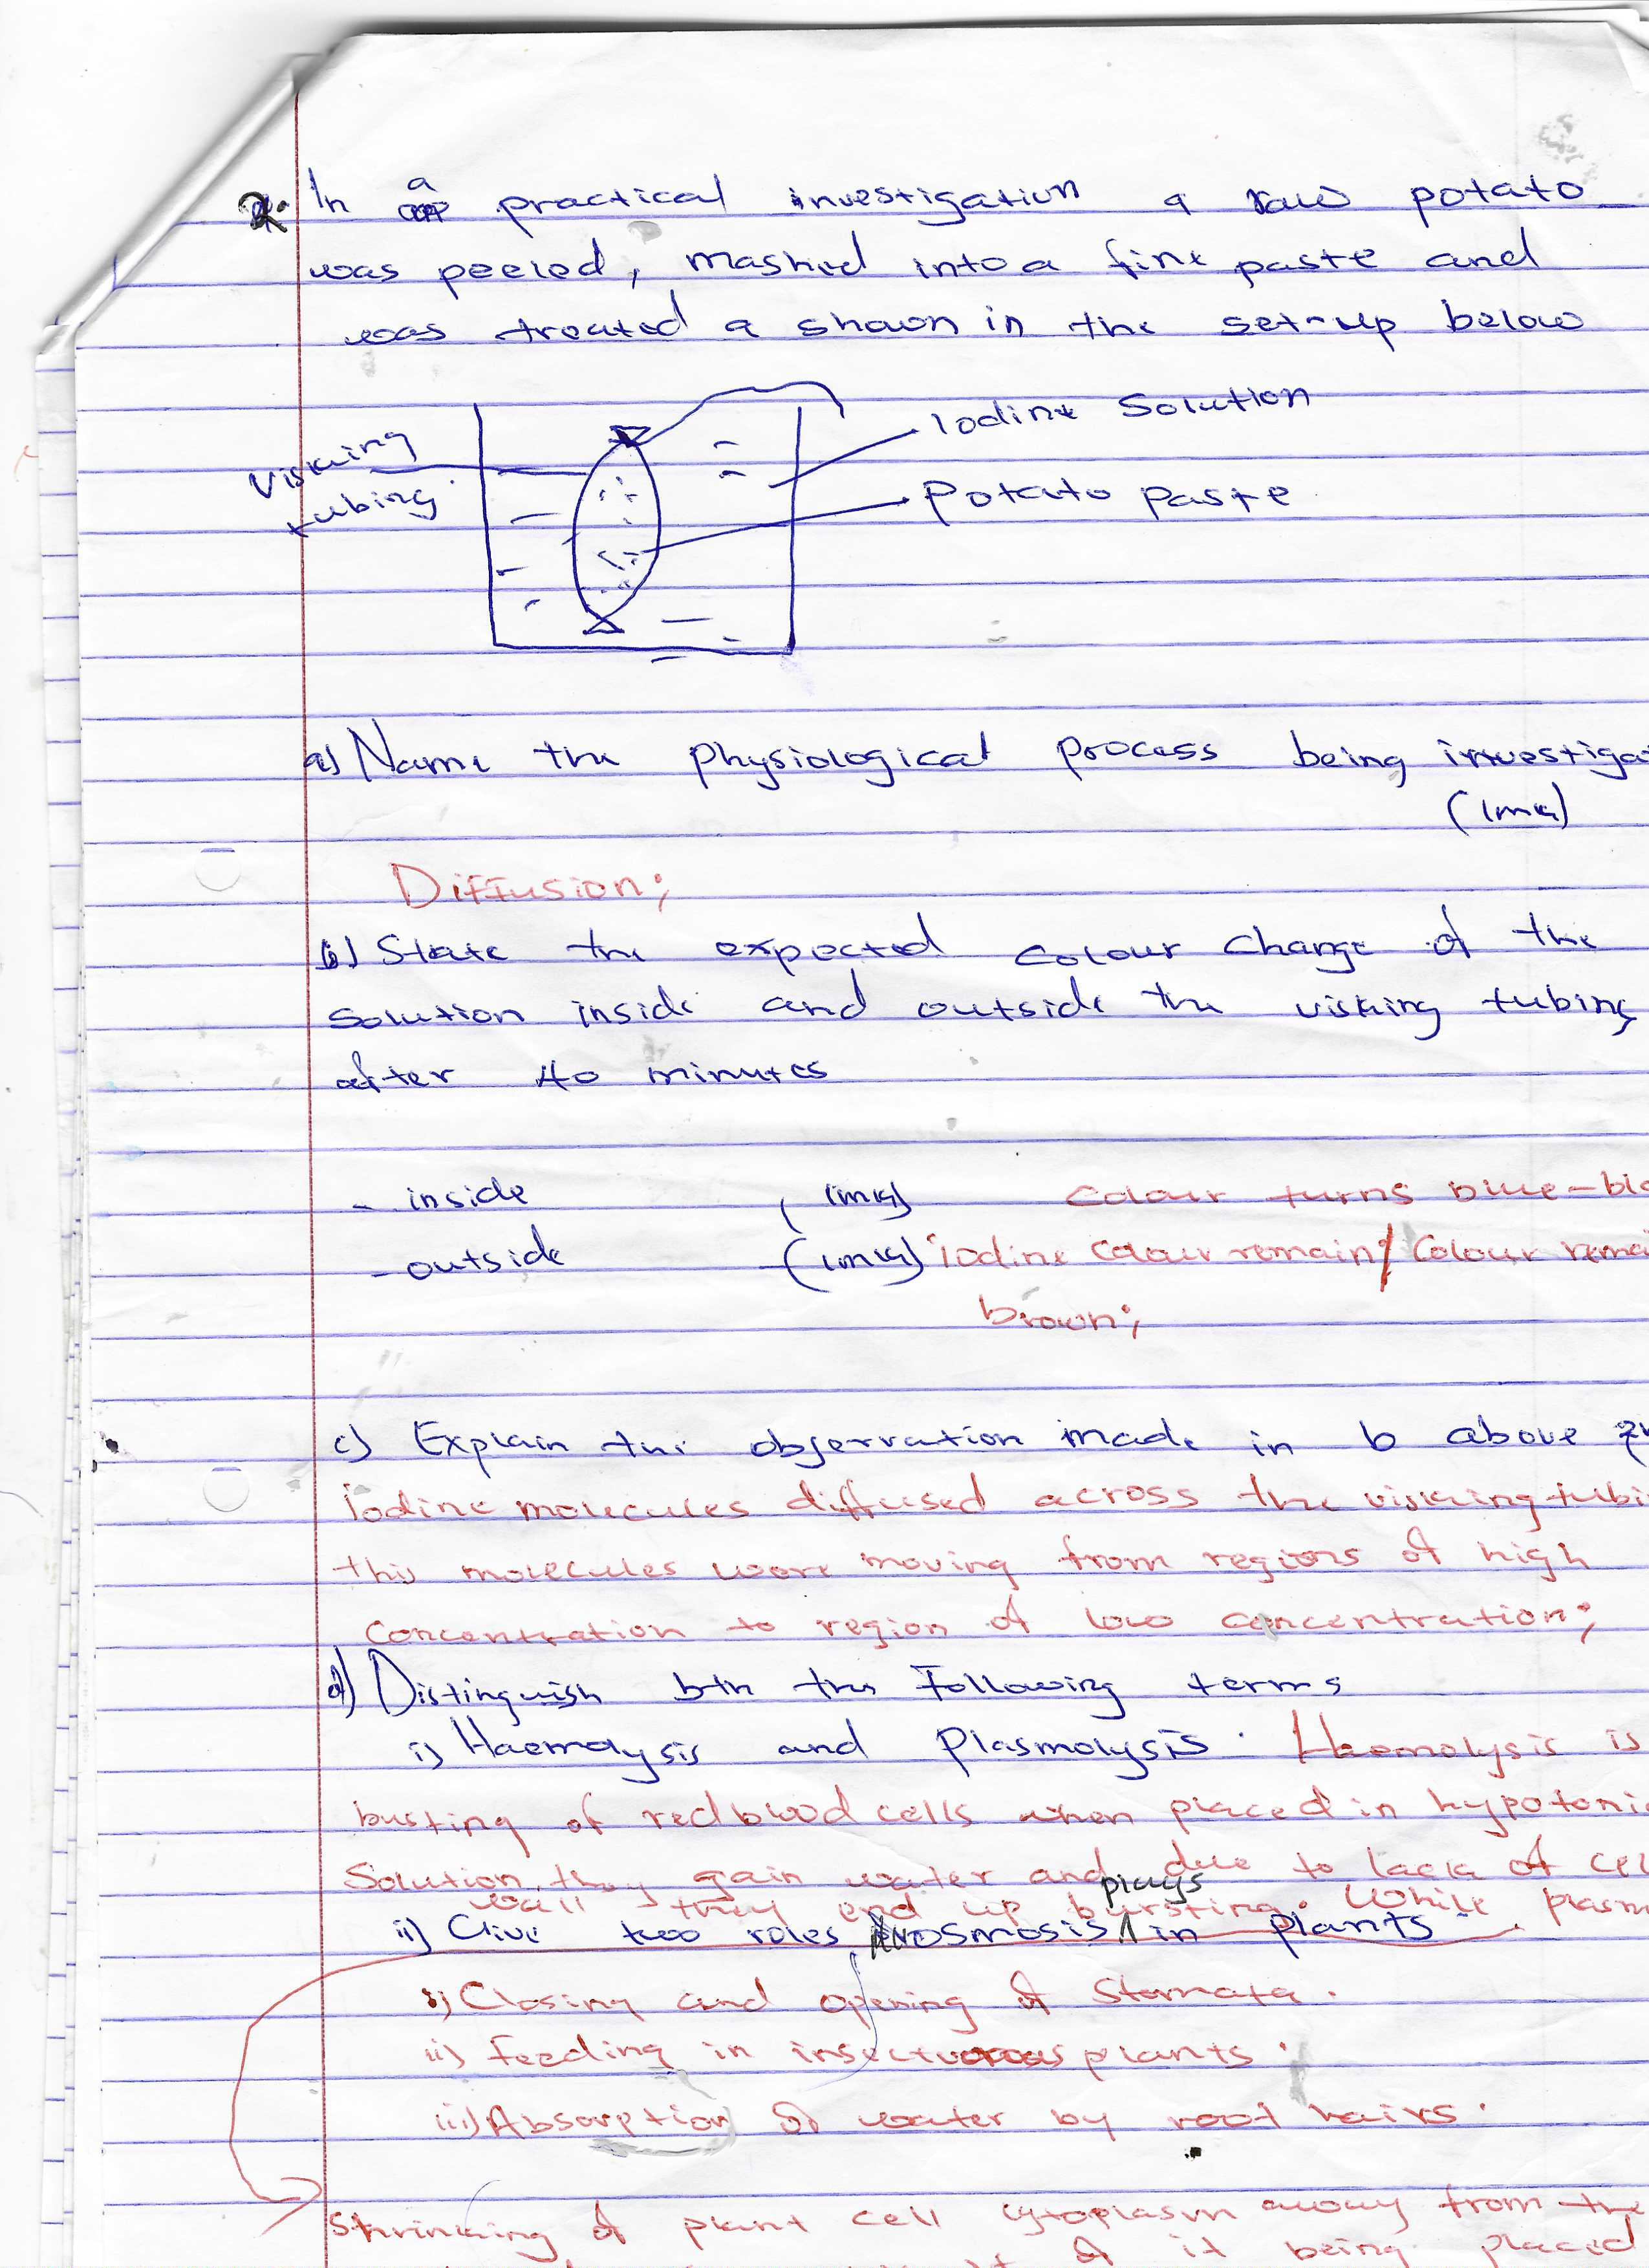 2. In a practical investigation a raw potato
was peeled, mashed into a fine paste and
was treated a shown in the set-up below
Iodine Solution
Visking
tubing
Potato paste
a) Name the physiological process being investiga
(1mk)
Diffusion;
b) State the expected colour change of the
solution inside and outside the visking tubing
after 40 minutes
- inside (1mk) Colour turns blue-bla
- outside (1mk) iodine colour remain/ Colour remai
brown;
c) Explain the observation made in b above
Iodine molecules diffused across the visking tubi
this molecules were moving from regions of high
Concentration to region of low concentration;
d) Distinguish btn the following terms
i) Haemolysis and Plasmolysis. Haemolysis is
busting of red blood cells when placed in hypotonic
Solution, they gain water and due to lack of cel
wall they end up bursting. While plasm
plays
ii) Give two roles osmosis in plants.
i) Closing and opening of Stomata.
ii) Feeding in plants.
iii) Absorption of water by root hairs.
Shrinking of plant cell cytoplasm away from the
of it being placed